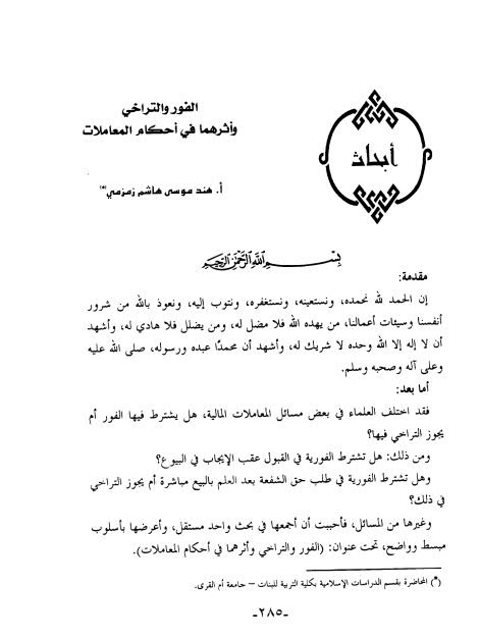 الفور والتراخي
وأثرهما في أحكام المعاملات
أبحاث
أ. هند موسى هاشم زمزمي(*)
بسم الله الرحمن الرحيم
مقدمة:
إن الحمد لله نحمده، ونستعينه، ونستغفره، ونتوب إليه، ونعوذ بالله من شرور
أنفسنا وسيئات أعمالنا، من يهده الله فلا مضل له، ومن يضلل فلا هادي له، وأشهد
أن لا إله إلا الله وحده لا شريك له، وأشهد أن محمدًا عبده ورسوله، صلى الله عليه
وعلى آله وصحبه وسلم.
أما بعد:
فقد اختلف العلماء في بعض مسائل المعاملات المالية، هل يشترط فيها الفور أم
يجوز التراخي فيها؟
ومن ذلك: هل تشترط الفورية في القبول عقب الإيجاب في البيوع؟
وهل تشترط الفورية في طلب حق الشفعة بعد العلم بالبيع مباشرة أم يجوز التراخي
في ذلك؟
وغيرها من المسائل، فأحببت أن أجمعها في بحث واحد مستقل، وأعرضها بأسلوب
مبسط وواضح، تحت عنوان: (الفور والتراخي وأثرهما في أحكام المعاملات).
(*) المحاضرة بقسم الدراسات الإسلامية بكلية التربية للبنات – جامعة أم القرى.
-٢٨٥-